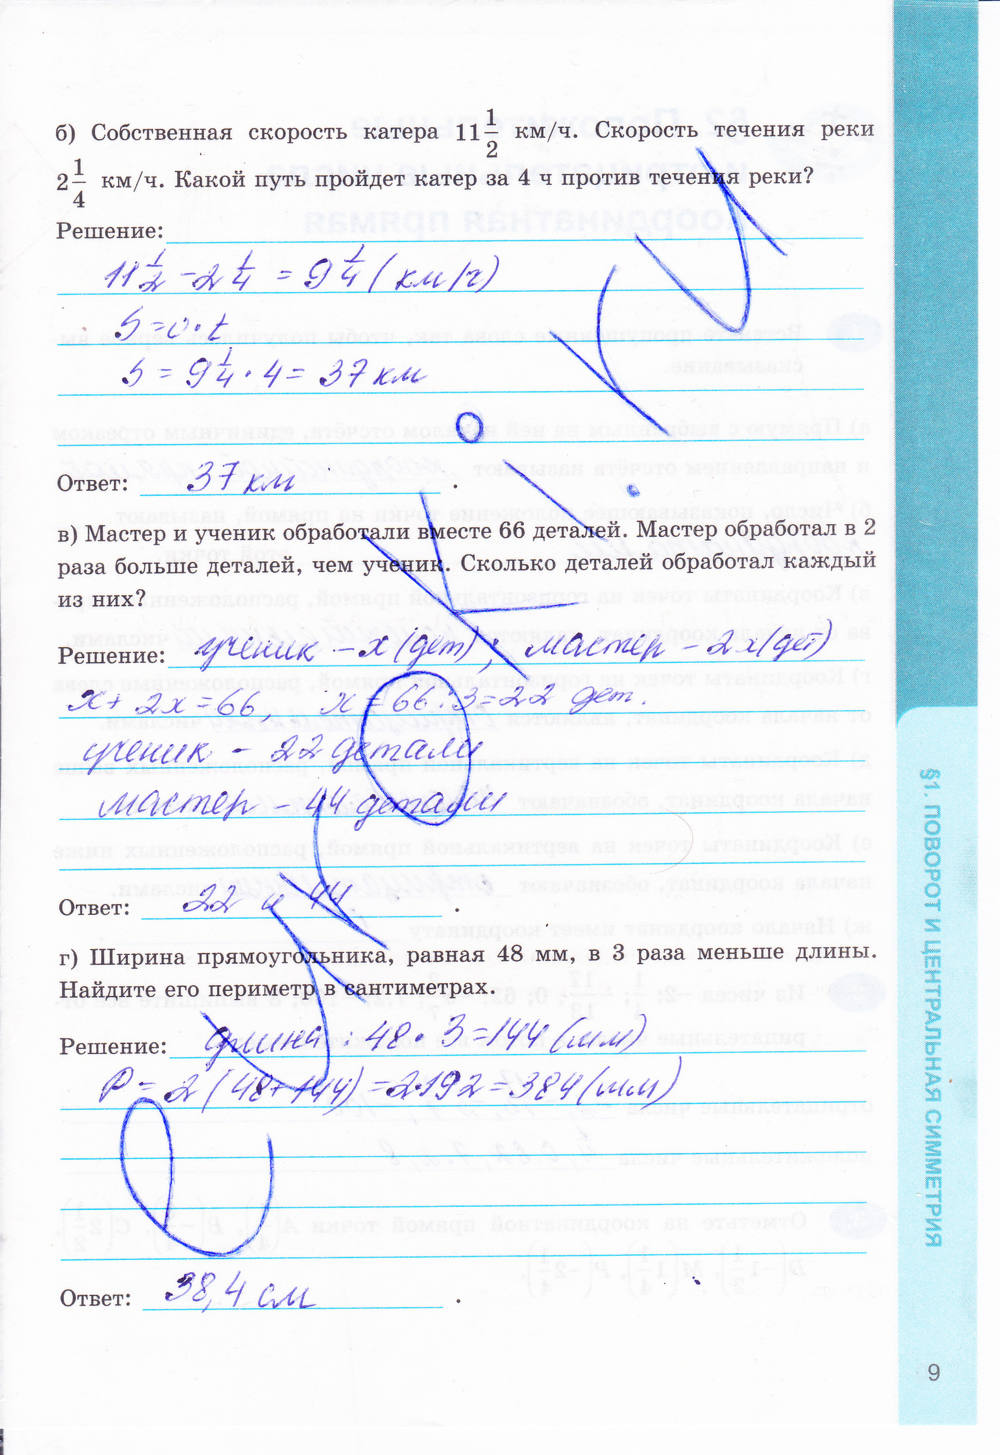 б) Собственная скорость катера 11 1/2 км/ч. Скорость течения реки
2 1/4 км/ч. Какой путь пройдет катер за 4 ч против течения реки?
Решение:
11 1/2 - 2 1/4 = 9 1/4 (км/ч)
S = v · t
S = 9 1/4 · 4 = 37 км
Ответ: 37 км .
в) Мастер и ученик обработали вместе 66 деталей. Мастер обработал в 2
раза больше деталей, чем ученик. Сколько деталей обработал каждый
из них?
Решение: ученик – x (дет), мастер – 2x (дет)
x + 2x = 66 x = 66 : 3 = 22 дет.
ученик - 22 детали
мастер - 44 детали
Ответ: 22 и 44 .
г) Ширина прямоугольника, равная 48 мм, в 3 раза меньше длины.
Найдите его периметр в сантиметрах.
Решение: длина: 48 · 3 = 144 (мм)
P = 2 (48 + 144) = 2·192 = 384 (мм)
Ответ: 38,4 см .
§1. ПОВОРОТ И ЦЕНТРАЛЬНАЯ СИММЕТРИЯ
9